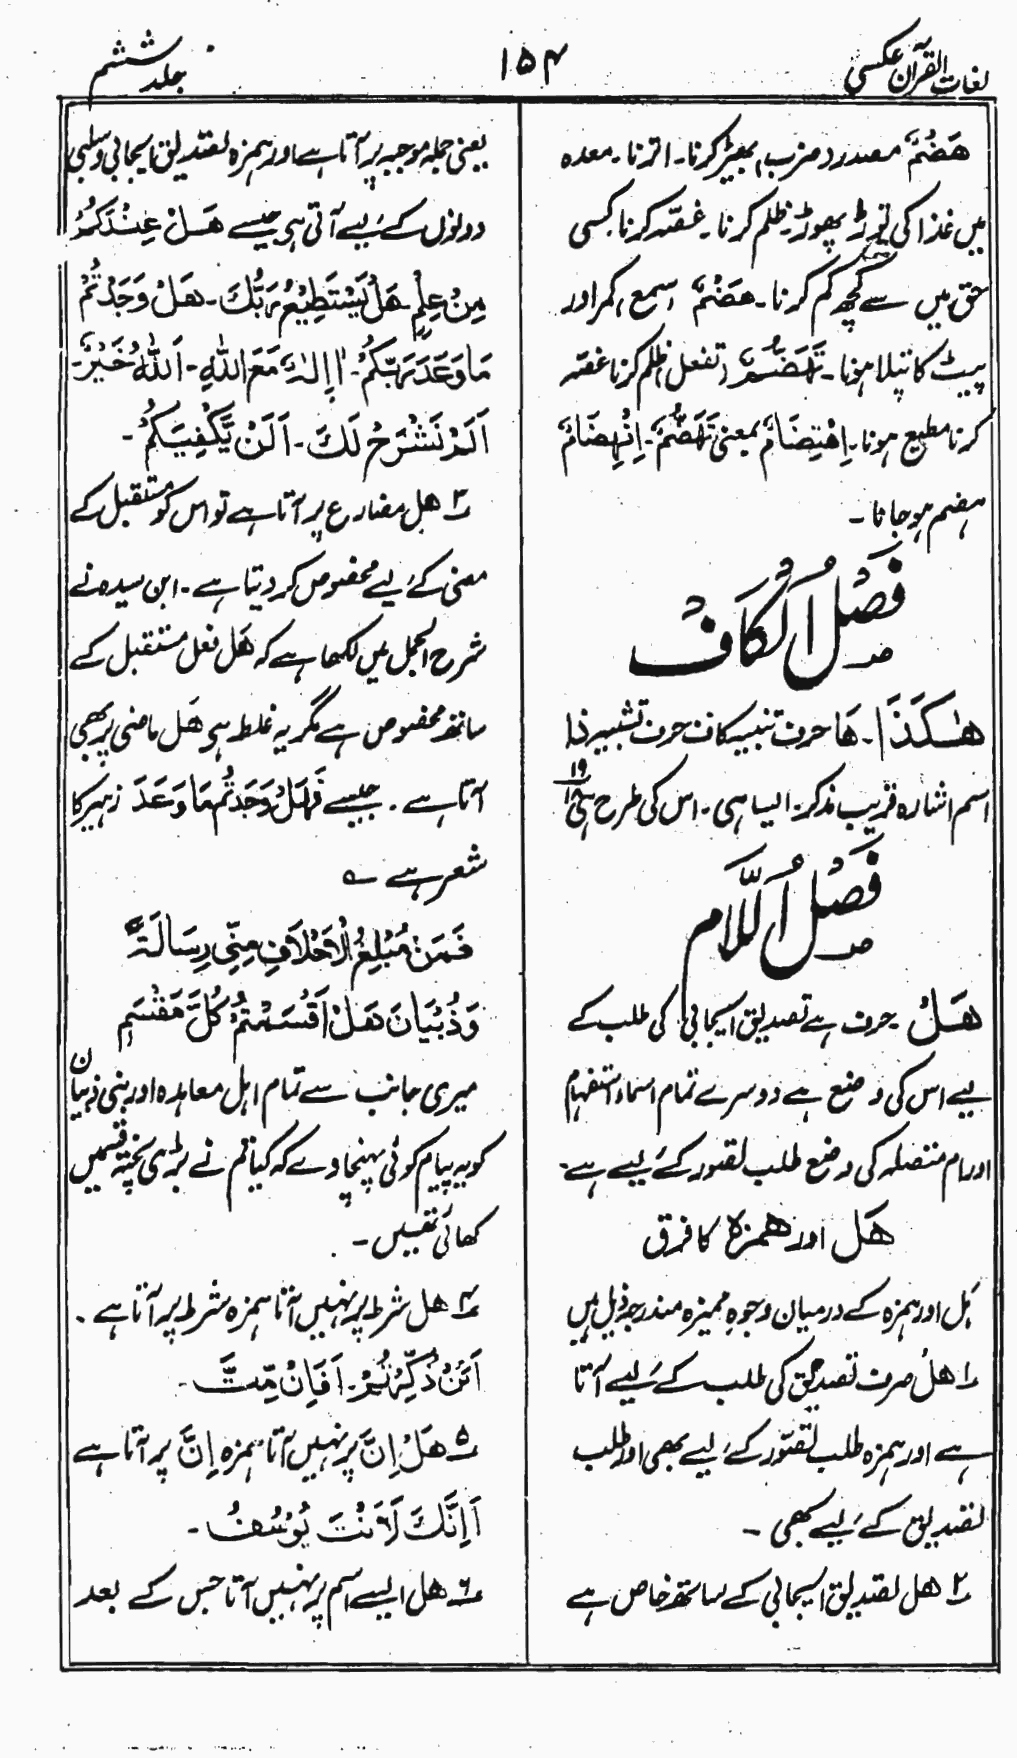 لغات القرآن عکسی
۱۵۴
جلد ششم
هَضْمٌ مصدر (ضرب) بھیڑ کرنا۔ اترنا۔ معدہ
میں غذا کی توڑ پھوڑ۔ ظلم کرنا۔ غصّہ کرنا کسی
حق میں سے کچھ کم کرنا۔ هَضَمٌ (سمع) کمر اور
پیٹ کا پتلا ہونا۔ تَهَضُّمٌ (تفعل) ظلم کرنا غصّہ
کرنا مطیع ہونا۔ اِهْتِضَامٌ بمعنی تَهَضُّمٌ۔ اِنْهِضَامٌ
ہضم ہو جانا۔
فَصْلُ الْكَافْ
هٰكَذَا۔ هَا حرف تنبیہ کاف حرف تشبیہ ذا
اسم اشارہ قریب مذکر۔ ایسا ہی۔ اس کی طرح ۱۹
فَصْلُ اللَّام
هَلْ حرف ہے تصدیق ایجابی کی طلب کے
لیے اس کی وضع ہے دوسرے تمام اسماء استفہام
اور ام متصلہ کی وضع طلب تصور کے لیے ہے۔
هَل اور همزه کا فرق
ہَل اور ہمزہ کے درمیان وجوہِ ممیزہ مندرجہ ذیل ہیں
۱ هل صرف تصدیق کی طلب کے لیے آتا
ہے اور ہمزہ طلب تصوّر کے لیے بھی اور طلب
تصدیق کے لیے بھی۔
۲ هل تصدیق ایجابی کے ساتھ خاص ہے
یعنی جملہ موجبہ پر آتا ہے اور ہمزہ تصدیق ایجابی و سلبی
دونوں کے لیے آتی ہی جیسے هَلْ عِنْدَكُمْ
مِنْ عِلْمٍ۔ هَلْ يَسْتَطِيْعُ رَبُّكَ۔ هَلْ وَجَدْتُمْ
مَا وَعَدَ رَبُّكُمْ۔ اَاِلٰهٌ مَعَ اللهِ۔ آَللهُ خَيْرٌ۔
اَلَمْ نَشْرَحْ لَكَ۔ اَلَنْ يَّكْفِيَكُمْ۔
۳ هل مضارع پر آتا ہے تو اس کو مستقبل کے
معنی کے لیے مخصوص کر دیتا ہے۔ ابن سیدہ نے
شرح الجمل میں لکھا ہے کہ هَل فعل مستقبل کے
ساتھ مخصوص ہے مگر یہ غلط ہی هَل ماضی پر بھی
آتا ہے۔ جیسے فَهَلْ وَجَدتُّم مَا وَعَدَ زہیر کا
شعر ہے ے
فَمَنْ مُبْلِغُ الْاَحْلَافِ مِنِّی رِسَالَةً
وَذُبْيَانَ هَلْ اَقْسَمْتُمْ كُلَّ مَقْسَمِ
میری جانب سے تمام اہل معاہدہ اور بنی ذبیان
کو یہ پیام کوئی پہنچاوے کہ کیا تم نے بڑی پختہ قسمیں
کھائی تھیں۔
۴ هل شرط پر نہیں آتا ہمزہ شرط پر آتا ہے۔
اَئِنْ ذُكِّرْتُمْ۔ اَفَاِنْ مِّتَّ۔
۵ هَلْ اِنَّ پر نہیں آتا ہمزہ اِنَّ پر آتا ہے
اَاِنَّكَ لَاَنْتَ يُوْسُفُ۔
۶ هل ایسے اسم پر نہیں آتا جس کے بعد